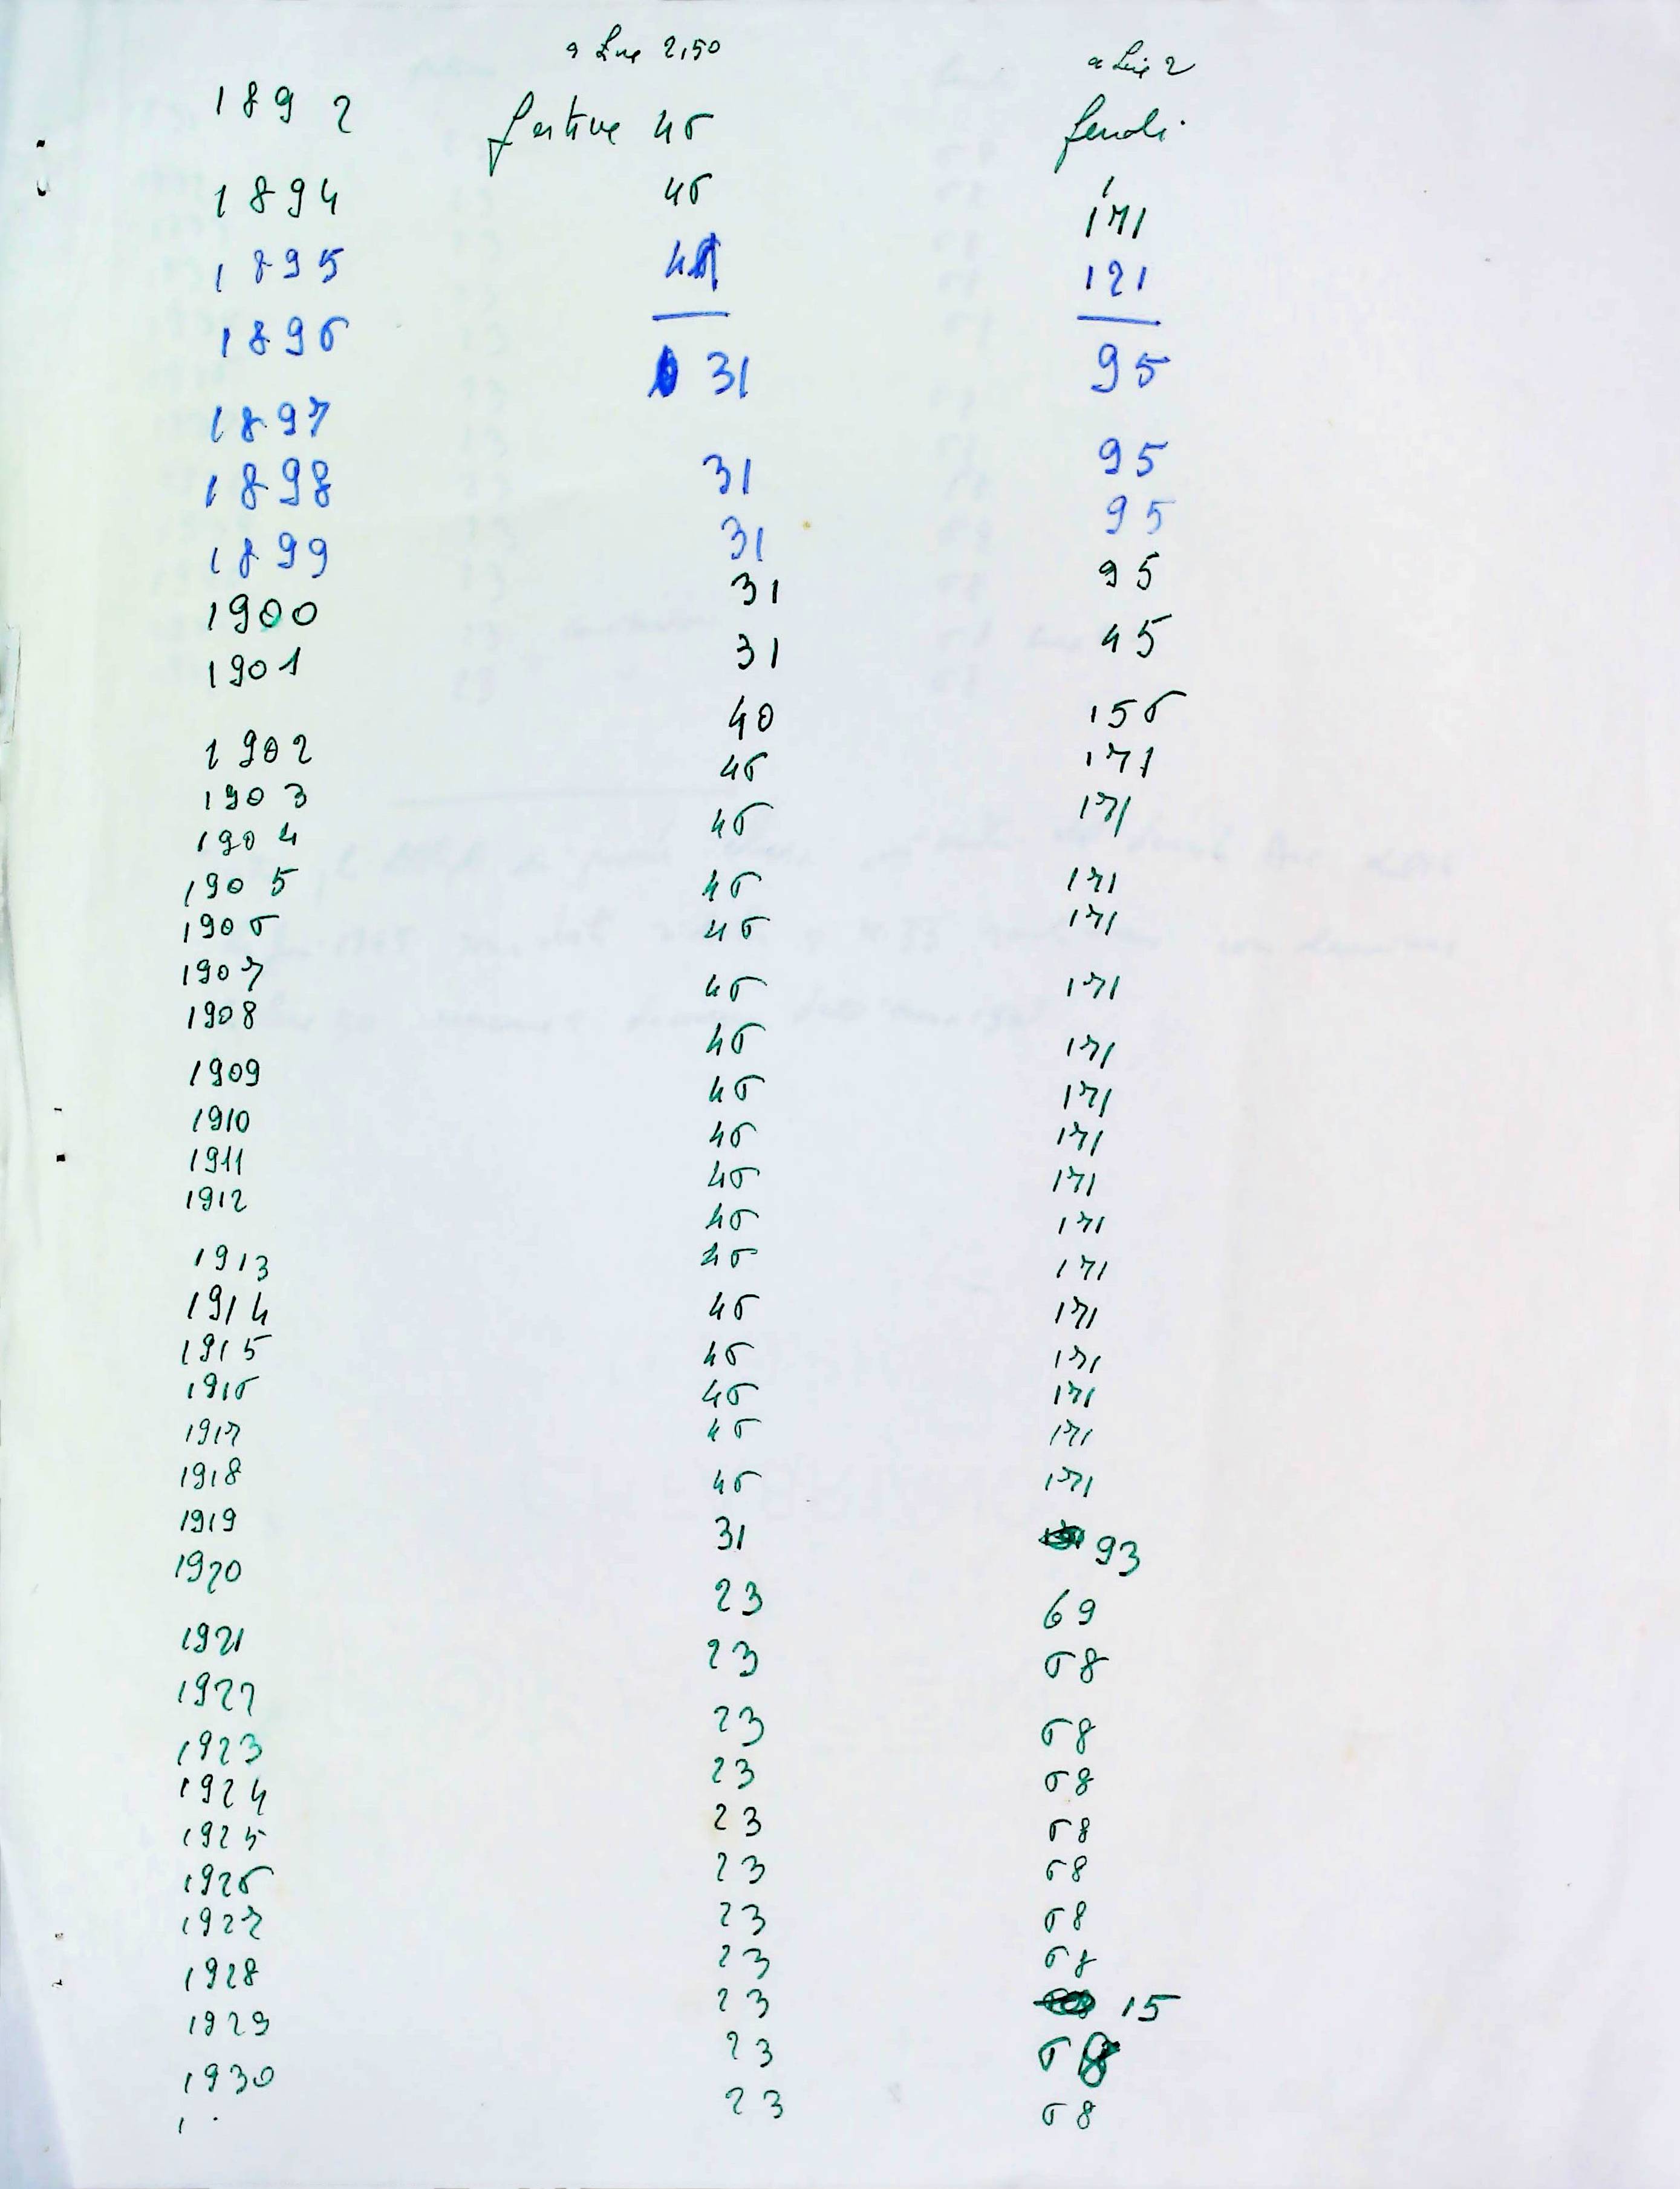 a Lire 2,50 a Lire 2
1892 festive 46 feriali
1894 46 171
1895 121
1896
1897 31 95
1898 31 95
1899 31 95
1900 31 95
1901 31 45
1902 40 156
1903 46 171
1904 46 171
1905 46 171
1906 46 171
1907 46 171
1908 46 171
1909 46 171
1910 46 171
1911 46 171
1912 46 171
1913 46 171
1914 46 171
1915 46 171
1916 46 171
1917 46 171
1918 46 171
1919 31 93
1920 23 69
1921 23 68
1922 23 68
1923 23 68
1924 23 68
1925 23 68
1926 23 68
1927 23 68
1928 23 15
1929 23 68
1930 23 68